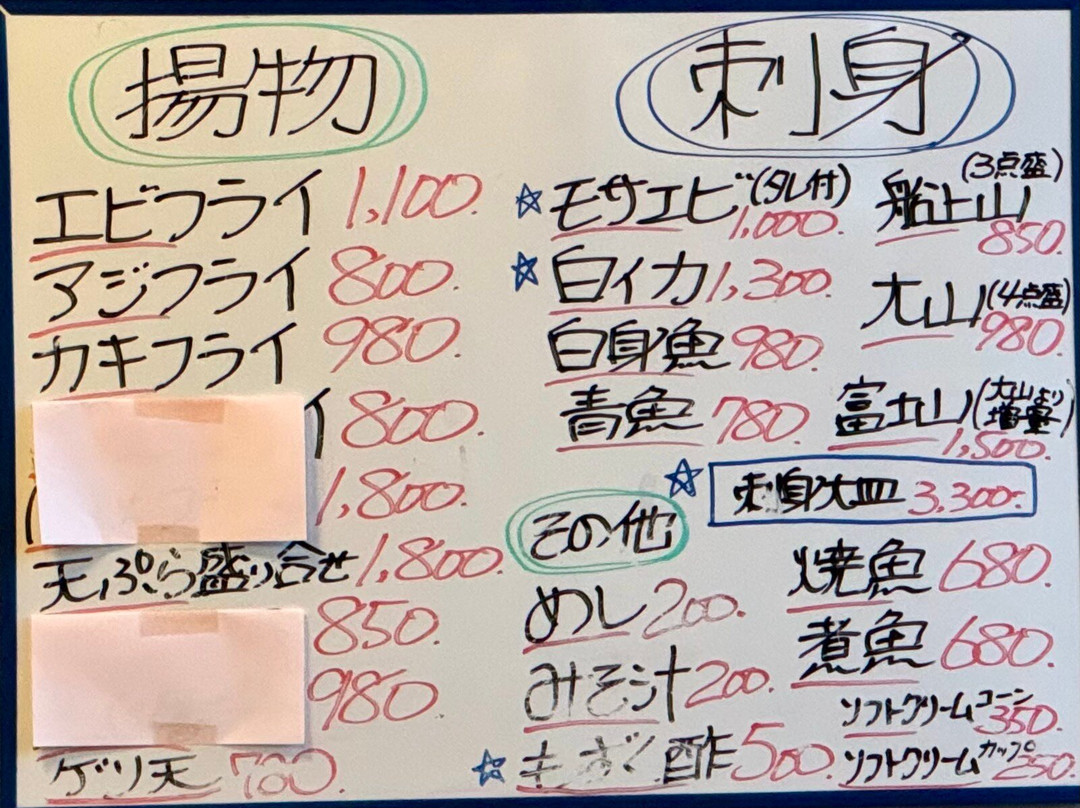 揚物
エビフライ 1,100.
アジフライ 800.
カキフライ 980.
イ 800.
1,800.
天ぷら盛り合せ 1,800.
850.
980.
ゲソ天 780.
刺身
☆モサエビ(タレ付) 1,000.
☆白イカ 1,300.
白身魚 980.
青魚 780.
船上山(3点盛) 850.
大山(4点盛) 980.
富士山(大山より増量) 1,500.
☆刺身大皿 3,300.
その他
めし 200.
みそ汁 200.
☆もずく酢 500.
焼魚 680.
煮魚 680.
ソフトクリームコーン 350.
ソフトクリームカップ 250.